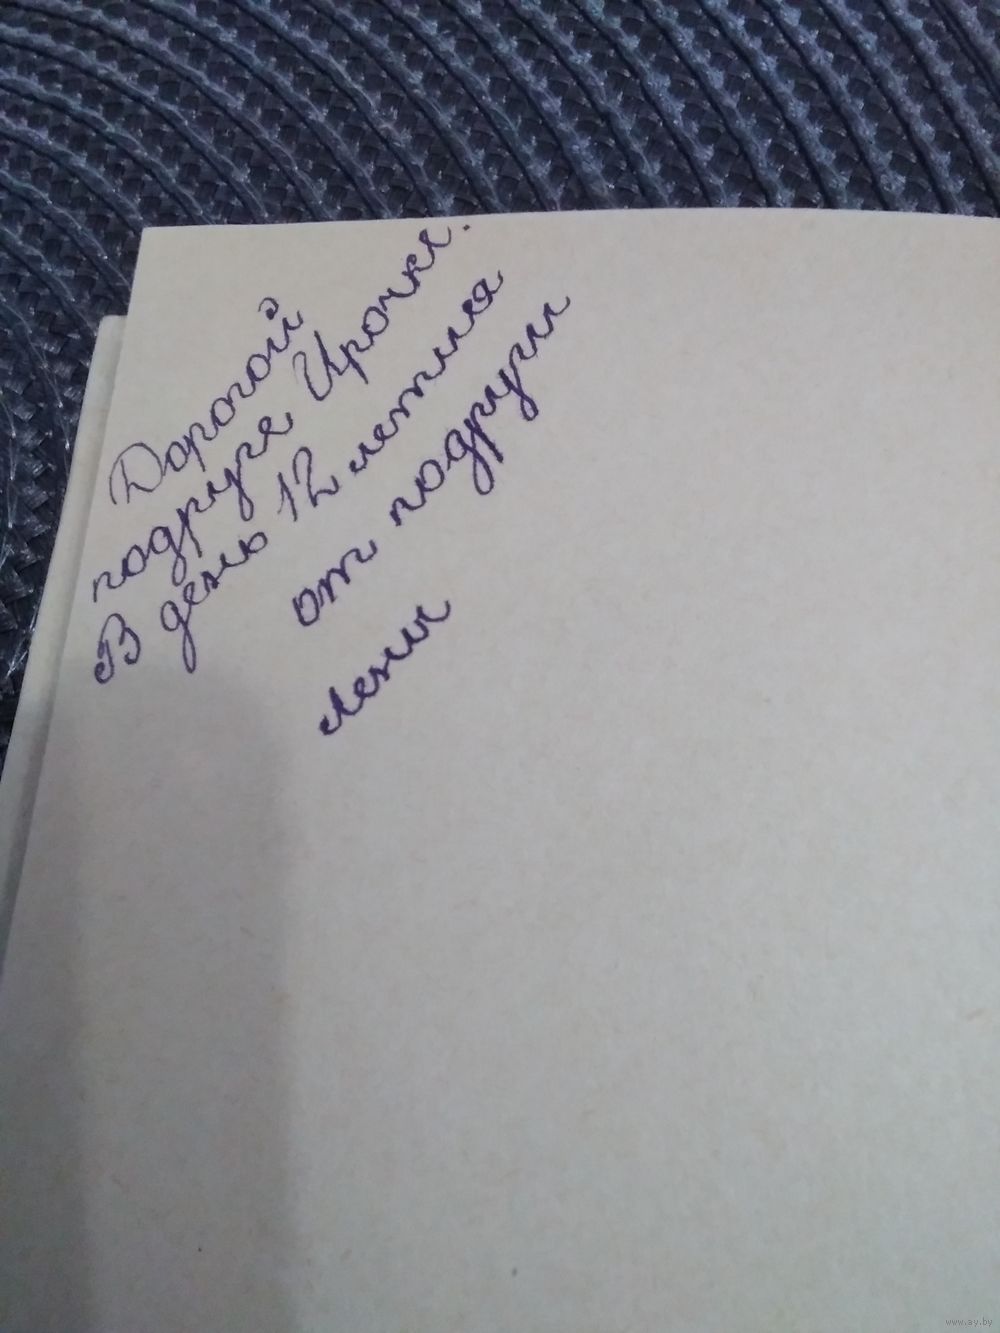 Дорогой
подруге Ирочке.
В день 12 летия
от подруги
Лены
www.ay.by